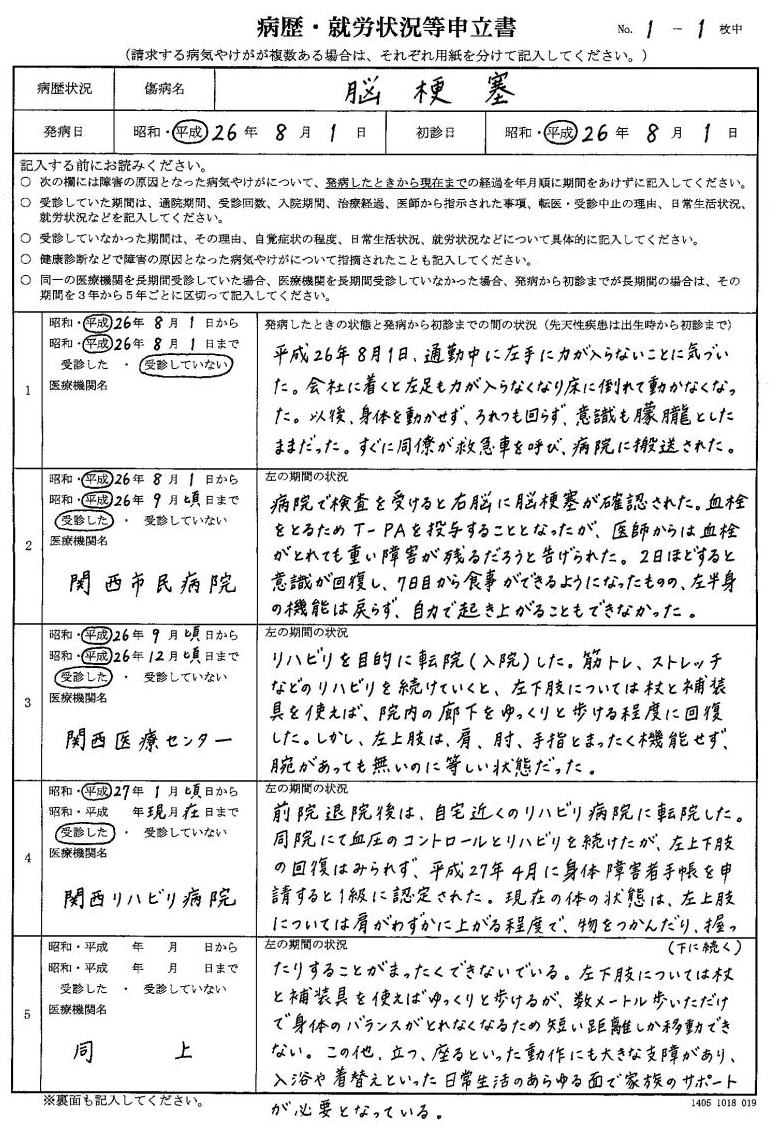 病歴・就労状況等申立書 No. 1 － 1 枚中
（請求する病気やけがが複数ある場合は、それぞれ用紙を分けて記入してください。）
病歴状況 傷病名 脳梗塞
発病日 昭和・平成 26 年 8 月 1 日 初診日 昭和・平成 26 年 8 月 1 日
記入する前にお読みください。
○ 次の欄には障害の原因となった病気やけがについて、発病したときから現在までの経過を年月順に期間をあけずに記入してください。
○ 受診していた期間は、通院期間、受診回数、入院期間、治療経過、医師から指示された事項、転医・受診中止の理由、日常生活状況、
就労状況などを記入してください。
○ 受診していなかった期間は、その理由、自覚症状の程度、日常生活状況、就労状況などについて具体的に記入してください。
○ 健康診断などで障害の原因となった病気やけがについて指摘されたことも記入してください。
○ 同一の医療機関を長期間受診していた場合、医療機関を長期間受診していなかった場合、発病から初診までが長期間の場合は、その
期間を３年から５年ごとに区切って記入してください。
1
昭和・平成 26 年 8 月 1 日から
昭和・平成 26 年 8 月 1 日まで
受診した ・ 受診していない
医療機関名
発病したときの状態と発病から初診までの間の状況（先天性疾患は出生時から初診まで）
平成26年8月1日、通勤中に左手に力が入らないことに気づい
た。会社に着くと左足も力が入らなくなり床に倒れて動かなくなっ
た。以後、身体を動かせず、ろれつも回らず、意識も朦朧とした
ままだった。すぐに同僚が救急車を呼び、病院に搬送された。
2
昭和・平成 26 年 8 月 1 日から
昭和・平成 26 年 9 月 頃 日まで
受診した ・ 受診していない
医療機関名
関西市民病院
左の期間の状況
病院で検査を受けると右脳に脳梗塞が確認された。血栓
をとるためT-PAを投与することとなったが、医師からは血栓
がとれても重い障害が残るだろうと告げられた。2日ほどすると
意識が回復し、7日目から食事ができるようになったものの、左半身
の機能は戻らず、自力で起き上がることもできなかった。
3
昭和・平成 26 年 9 月 頃 日から
昭和・平成 26 年 12 月 頃 日まで
受診した ・ 受診していない
医療機関名
関西医療センター
左の期間の状況
リハビリを目的に転院（入院）した。筋トレ、ストレッチ
などのリハビリを続けていくと、左下肢については杖と補装
具を使えば、院内の廊下をゆっくりと歩ける程度に回復
した。しかし、左上肢は、肩、肘、手指とまったく機能せず、
腕があっても無いのに等しい状態だった。
4
昭和・平成 27 年 1 月 頃 日から
昭和・平成 年 現 月 在 日まで
受診した ・ 受診していない
医療機関名
関西リハビリ病院
左の期間の状況
前院退院後は、自宅近くのリハビリ病院に転院した。
同院にて血圧のコントロールとリハビリを続けたが、左上下肢
の回復はみられず、平成27年4月に身体障害者手帳を申
請すると1級に認定された。現在の体の状態は、左上肢
については肩がわずかに上がる程度で、物をつかんだり、握っ
5
昭和・平成 年 月 日から
昭和・平成 年 月 日まで
受診した ・ 受診していない
医療機関名
同 上
左の期間の状況 （下に続く）
たりすることがまったくできないでいる。左下肢については杖
と補装具を使えばゆっくりと歩けるが、数メートル歩いただけ
で身体のバランスがとれなくなるため短い距離しか移動でき
ない。この他、立つ、座るといった動作にも大きな支障があり、
入浴や着替えといった日常生活のあらゆる面で家族のサポート
が必要となっている。
※裏面も記入してください。
1406 1018 019